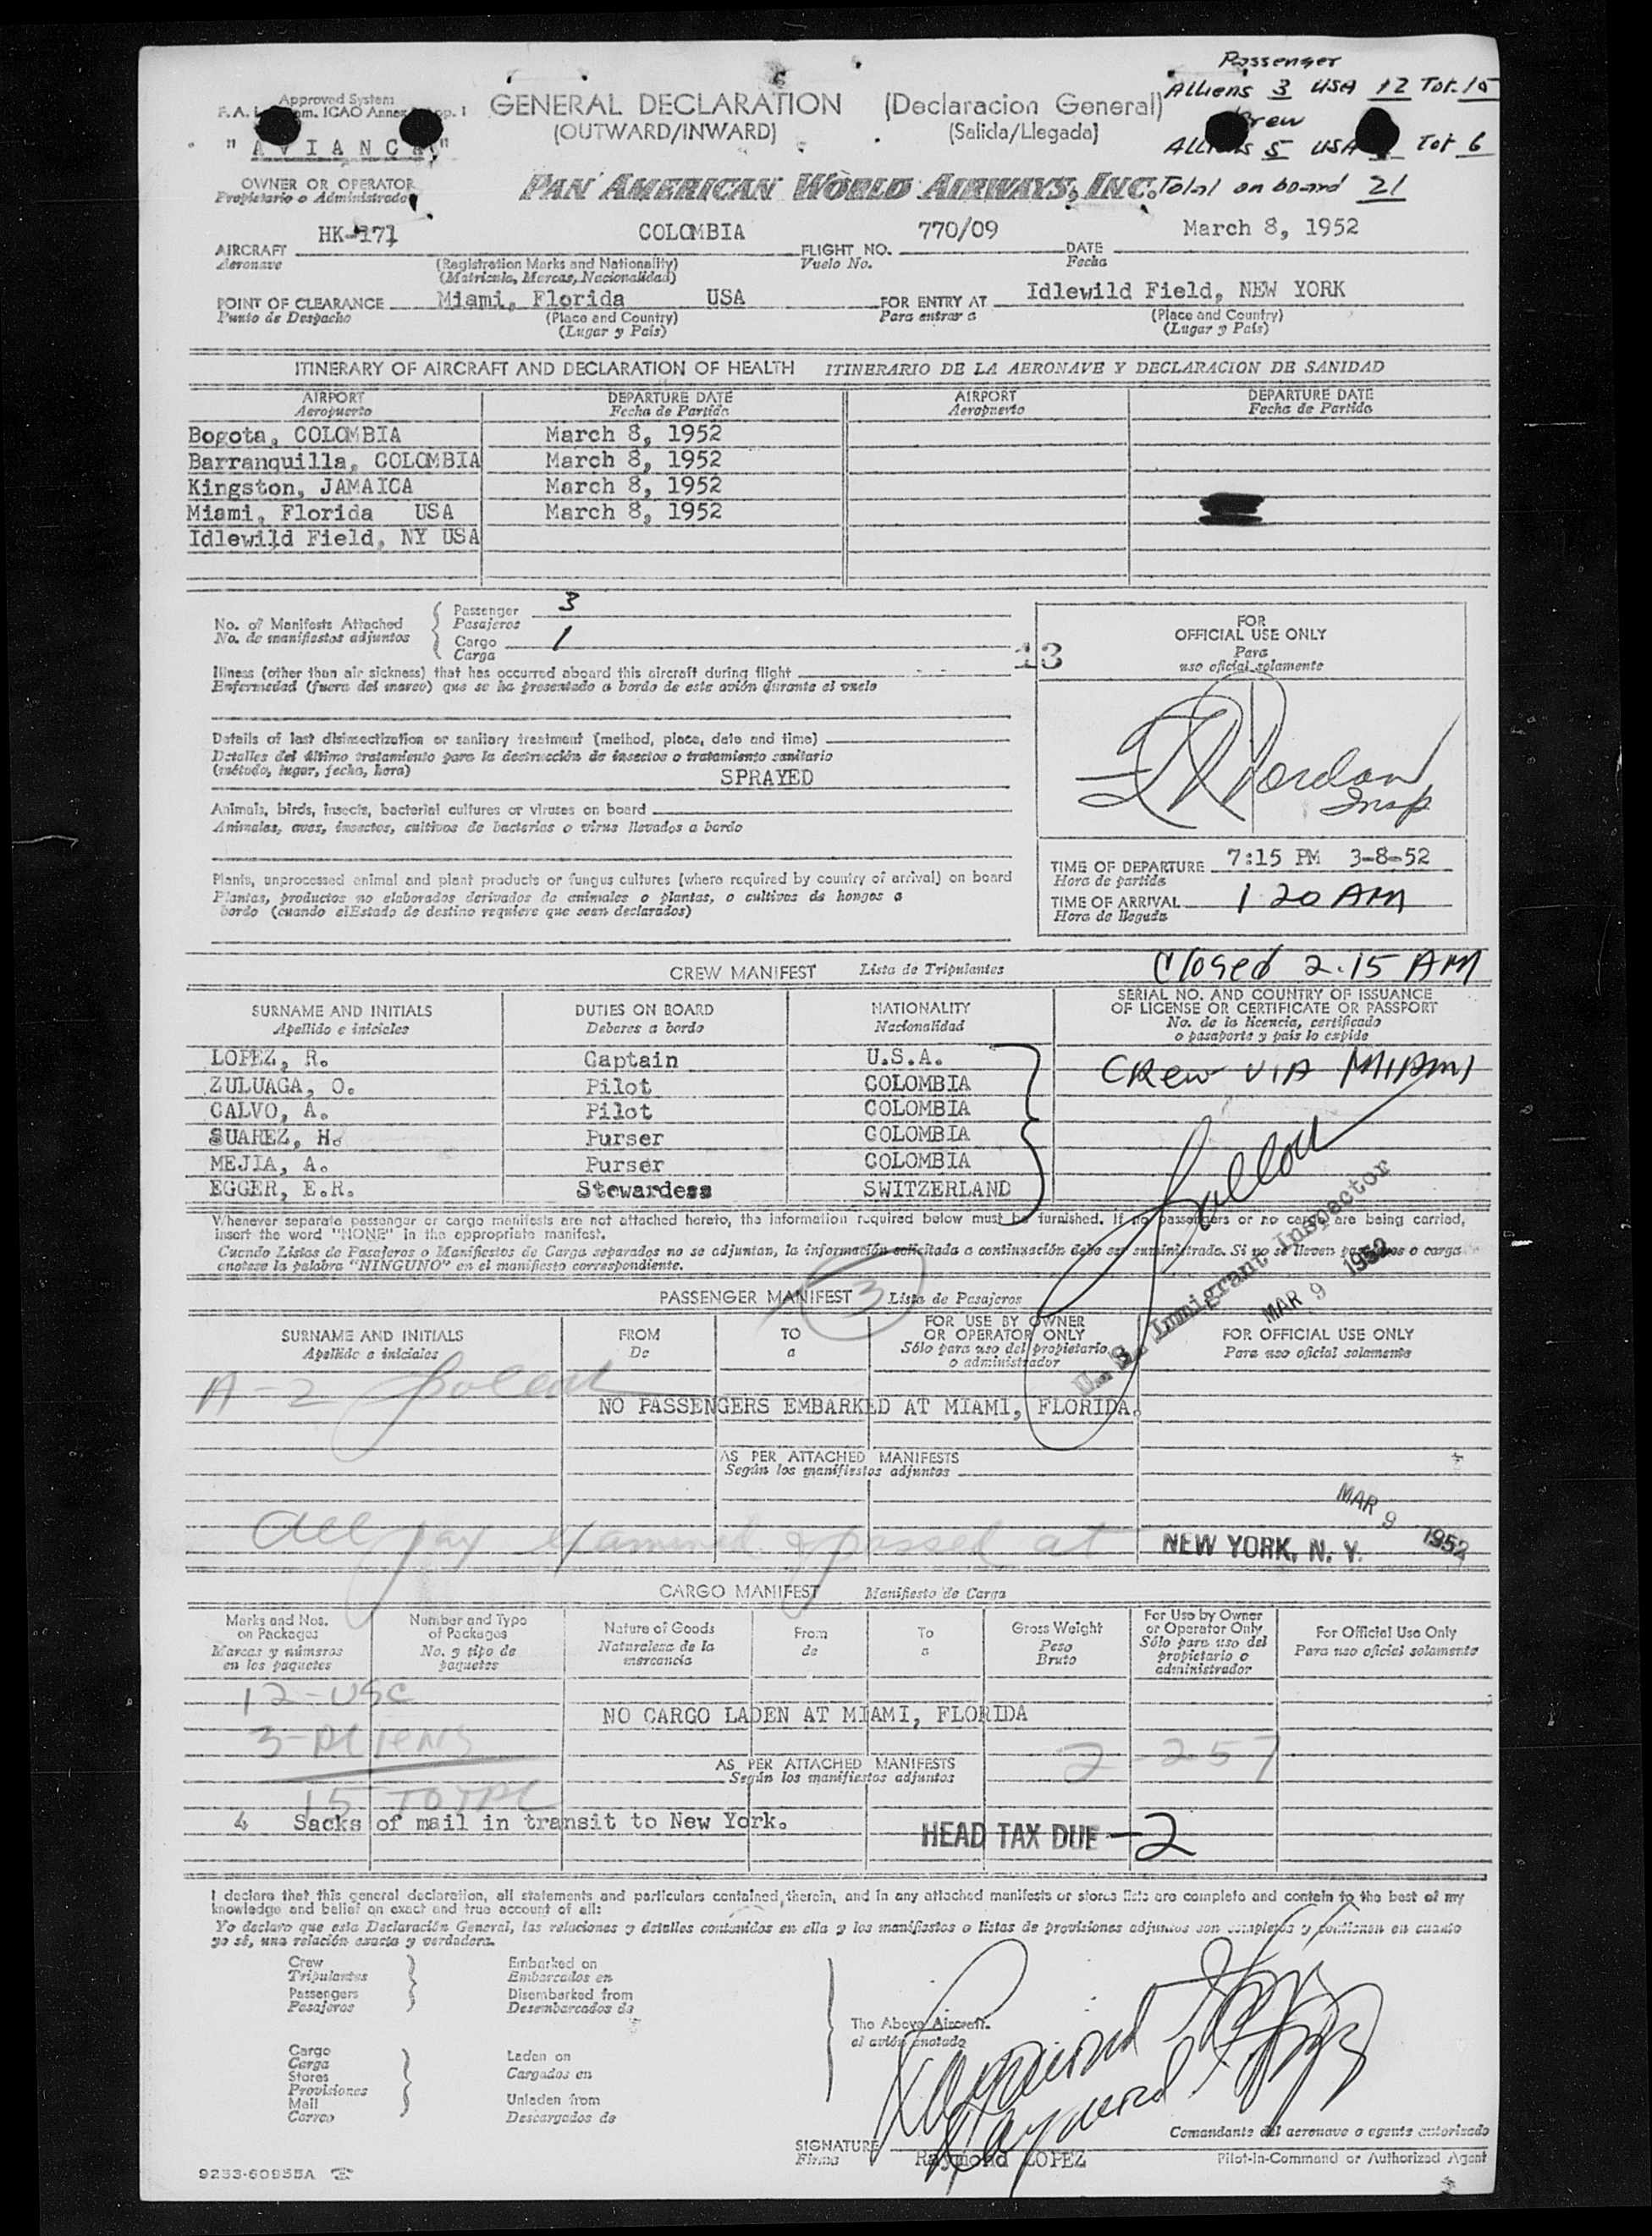 Passenger
Approved System
GENERAL DECLARATION (Declaracion General)
Alliens 3 USA 12 Tot. 15
(OUTWARD/INWARD) (Salida/Llegada)
Crew
"AVIANCA"
Alliens 5 USA Tot 6
OWNER OR OPERATOR
Propietario o Administrador
PAN AMERICAN WORLD AIRWAYS, INC.
Total on board 21
AIRCRAFT HK-171 COLOMBIA FLIGHT NO. 770/09 DATE March 8, 1952
Aeronave (Registration Marks and Nationality) Vuelo No. Fecha
(Matricula, Marcas, Nacionalidad)
POINT OF CLEARANCE Miami, Florida USA FOR ENTRY AT Idlewild Field, NEW YORK
Punto de Despacho (Place and Country) Para entrar a (Place and Country)
(Lugar y País) (Lugar y País)
ITINERARY OF AIRCRAFT AND DECLARATION OF HEALTH ITINERARIO DE LA AERONAVE Y DECLARACION DE SANIDAD
AIRPORT DEPARTURE DATE AIRPORT DEPARTURE DATE
Aeropuerto Fecha de Partida Aeropuerto Fecha de Partida
Bogota, COLOMBIA March 8, 1952
Barranquilla, COLOMBIA March 8, 1952
Kingston, JAMAICA March 8, 1952
Miami, Florida USA March 8, 1952
Idlewild Field, NY USA
No. of Manifests Attached Passenger 3
No. de manifiestos adjuntos Pasajeros
Cargo 1
Carga
13
FOR
OFFICIAL USE ONLY
Para
uso oficial solamente
Illness (other than air sickness) that has occurred aboard this aircraft during flight
Enfermedad (fuera del mareo) que se ha presentado a bordo de este avión durante el vuelo
Details of last disinsectization or sanitary treatment (method, place, date and time)
Detalles del último tratamiento para la destrucción de insectos o tratamiento sanitario
(método, lugar, fecha, hora) SPRAYED
Insp
Animals, birds, insects, bacterial cultures or viruses on board
Animales, aves, insectos, cultivos de bacterias o virus llevados a bordo
TIME OF DEPARTURE 7:15 PM 3-8-52
Hora de partida
Plants, unprocessed animal and plant products or fungus cultures (where required by country of arrival) on board
Plantas, productos no elaborados derivados de animales o plantas, o cultivos de hongos a
bordo (cuando elEstado de destino requiere que sean declarados)
TIME OF ARRIVAL 1 20 AM
Hora de llegada
Closed 2.15 AM
CREW MANIFEST Lista de Tripulantes
SURNAME AND INITIALS DUTIES ON BOARD NATIONALITY SERIAL NO. AND COUNTRY OF ISSUANCE
OF LICENSE OR CERTIFICATE OR PASSPORT
Apellido e iniciales Deberes a bordo Nacionalidad No. de la licencia, certificado
o pasaporte y país lo expide
LOPEZ, R. Captain U.S.A. Crew VIA MIAMI
ZULUAGA, O. Pilot COLOMBIA
CALVO, A. Pilot COLOMBIA
SUAREZ, H. Purser COLOMBIA
MEJIA, A. Purser COLOMBIA
EGGER, E.R. Stewardess SWITZERLAND
Whenever separate passenger or cargo manifests are not attached hereto, the information required below must be furnished. If no passengers or no cargo are being carried,
insert the word "NONE" in the appropriate manifest.
Cuando Listas de Pasajeros o Manifiestos de Carga separados no se adjuntan, la información solicitada a continuación debe ser suministrada. Si no se lleven pasajeros o carga
anotese la palabra "NINGUNO" en el manifiesto correspondiente.
U.S. Immigrant Inspector
MAR 9 1952
PASSENGER MANIFEST 3 Lista de Pasajeros
SURNAME AND INITIALS FROM TO FOR USE BY OWNER
OR OPERATOR ONLY FOR OFFICIAL USE ONLY
Apellido e iniciales De a Sólo para uso del propietario
o administrador Para uso oficial solamente
A-2
NO PASSENGERS EMBARKED AT MIAMI, FLORIDA.
AS PER ATTACHED MANIFESTS
Según los manifiestos adjuntos
MAR 9 1952
All pax examined & passed at NEW YORK, N. Y.
CARGO MANIFEST Manifiesto de Carga
Marks and Nos.
on Packages
Marcas y números
en los paquetes
Number and Type
of Packages
No. y tipo de
paquetes
Nature of Goods
Naturaleza de la
mercancía
From
de
To
a
Gross Weight
Peso
Bruto
For Use by Owner
or Operator Only
Sólo para uso del
propietario o
administrador
For Official Use Only
Para uso oficial solamente
12-USC
NO CARGO LADEN AT MIAMI, FLORIDA
3-Aliens
AS PER ATTACHED MANIFESTS 2-257
Según los manifiestos adjuntos
15 TOTAL
4 Sacks of mail in transit to New York.
HEAD TAX DUE -2
I declare that this general declaration, all statements and particulars contained therein, and in any attached manifests or stores lists are complete and contain to the best of my
knowledge and belief an exact and true account of all:
Yo declaro que esta Declaración General, las relaciones y detalles contenidos en ella y los manifiestos o listas de provisiones adjuntos son completos y contienen en cuanto
yo sé, una relación exacta y verdadera.
Crew Embarked on
Tripulantes Embarcados en
Passengers Disembarked from
Pasajeros Desembarcados de
The Above Aircraft.
el avión anotado
Cargo Laden on
Carga Cargados en
Stores
Provisiones
Mail Unladen from
Correo Descargados de
Comandante del aeronave o agente autorizado
SIGNATURE Raymond LOPEZ Pilot-in-Command or Authorized Agent
Firma
9253-60955A